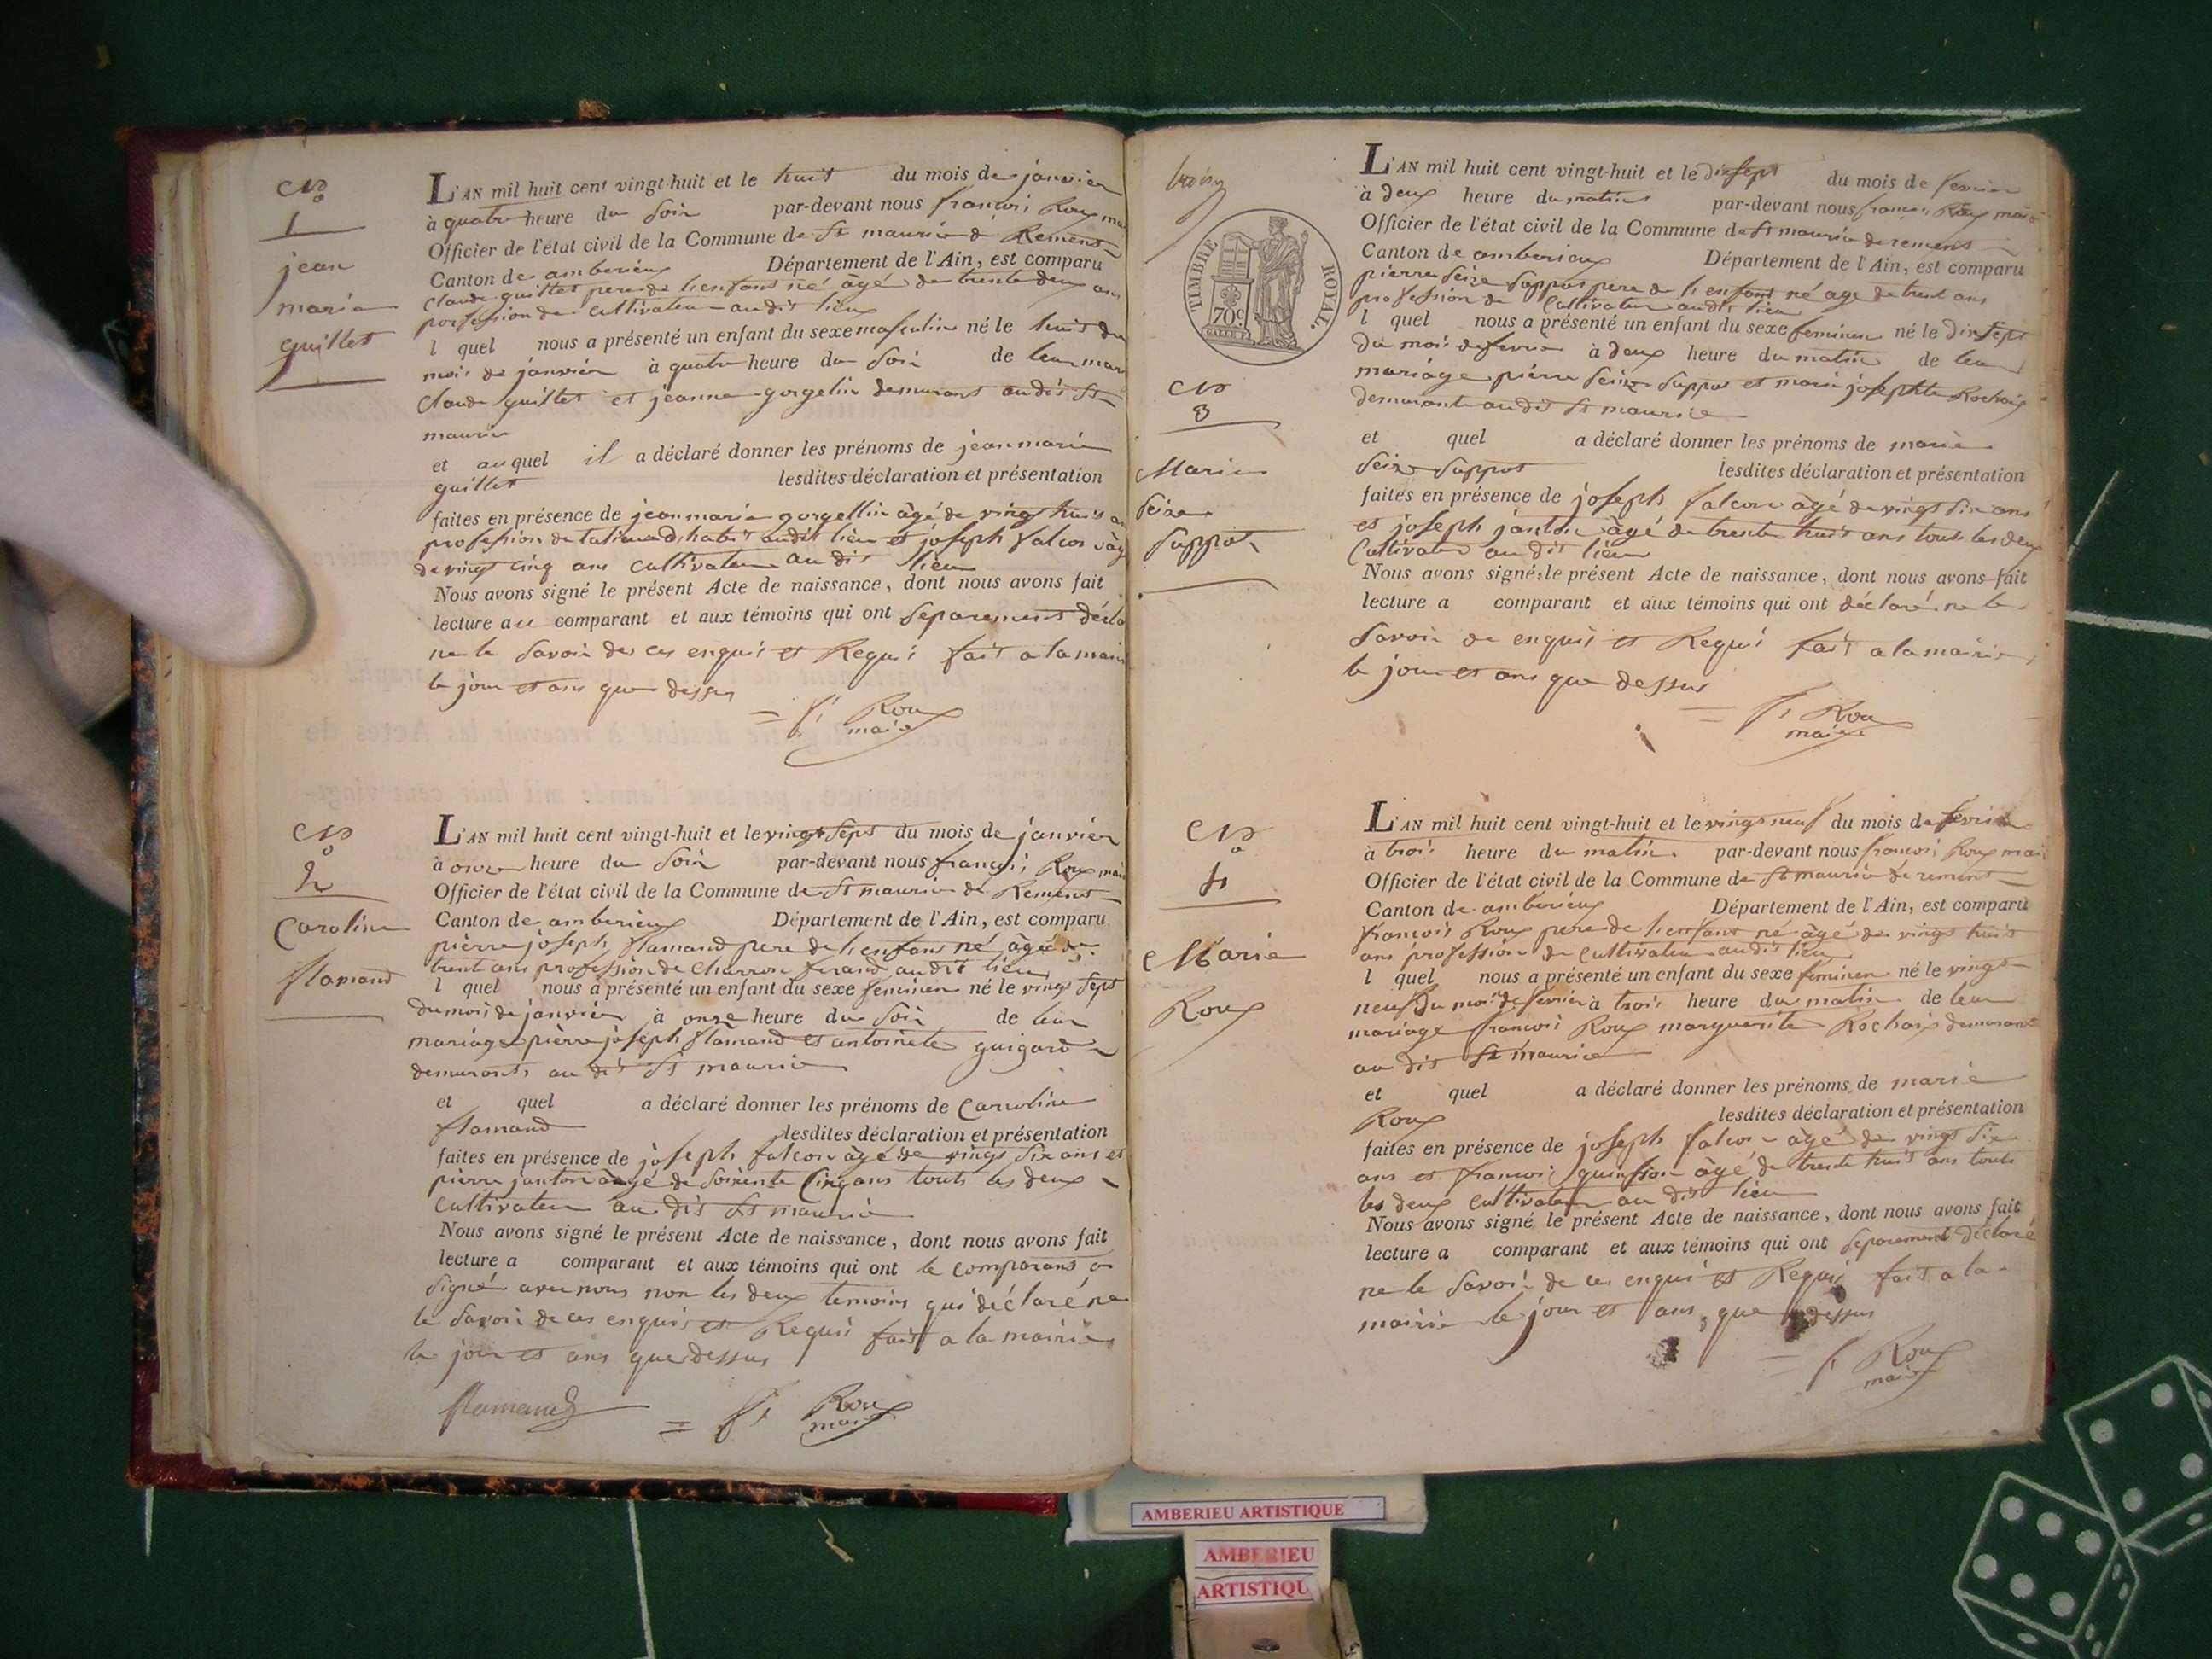 No
1
jean
marie
guillet
L'AN mil huit cent vingt-huit et le huit du mois de janvier
à quatre heure du soir par-devant nous francois Roux mai
Officier de l'état civil de la Commune de St maurice de Remens
Canton de amberieux Département de l'Ain, est comparu
Claude guillet pere de l'enfans né âgé de trente deux ans
porfession de cultivateur audit lieu
l quel nous a présenté un enfant du sexe masculin né le huit du
mois de janvier à quatre heure du soir de leur mari
Claude guillet et jeanne gorgelin demurans au dit St
maurice
et auquel il a déclaré donner les prénoms de jean marie
guillet lesdites déclaration et présentation
faites en présence de jean marie gorgellin âgé de vingt huit an
profession de habit audit lieu et joseph falcon âg
de vingt cinq ans cultivateur au dit lieu
Nous avons signé le présent Acte de naissance, dont nous avons fait
lecture au comparant et aux témoins qui ont separement décla
ne le savoir de ces enquis et Requis fait a la mairi
le jour et ans que dessus
= fs Roux
maire
No
2
Caroline
flamand
L'AN mil huit cent vingt-huit et le vingt sept du mois de janvier
à onze heure du soir par-devant nous françois Roux mai
Officier de l'état civil de la Commune de St maurice de Remens
Canton de amberieux Département de l'Ain, est comparu
pierre joseph flamand pere de l'enfans né âgé de
trent ans profession de charron ferand audit lieu
l quel nous a présenté un enfant du sexe feminen né le vingt sept
du mois de janvier à onze heure du soir de leur
mariage pierre joseph flamand et antoinete guigard
demurants au dit St maurice
et quel a déclaré donner les prénoms de Caroline
flamand lesdites déclaration et présentation
faites en présence de joseph falcon âgé de vingt six ans et
pierre janton âgé de soixente cinq ans touts les deux
cultivateur au dit St maurice
Nous avons signé le présent Acte de naissance, dont nous avons fait
lecture a comparant et aux témoins qui ont le comparans a
signé avec nous non les deux temoins qui déclaré ne
le savoir de ces enquis et Requis fait a la mairie
le jour et ans que dessus
flamand = fs Roux
maire
TIMBRE ROYAL.
70c
No
3
Marie
Seize
Suppot
L'AN mil huit cent vingt-huit et le dix sept du mois de fevrier
à deux heure du matin par-devant nous francois Roux maire
Officier de l'état civil de la Commune de St maurice de remens
Canton de amberieux Département de l'Ain, est comparu
pierre Seize Suppot pere de l'enfans né age de trent ans
profession de Cultivateur audit lieu
l quel nous a présenté un enfant du sexe feminen né le dix sept
du mois de fevrier à deux heure du matin de leur
mariage pierre Seize Suppot et marie josephte Rochaix
demurants au dit St maurice
et quel a déclaré donner les prénoms de marie
Seize Suppot lesdites déclaration et présentation
faites en présence de joseph falcon âgé de vingt six ans
et joseph janton âgé de trente huit ans touts les deux
Cultivateur au dit lieu
Nous avons signé le présent Acte de naissance, dont nous avons fait
lecture a comparant et aux témoins qui ont déclaré ne le
savoir de enquis et Requis fait a la mairie
le jour et ans que dessus
= fs Roux
maire
No
4
Marie
Roux
L'AN mil huit cent vingt-huit et le vingt neuf du mois de février
à trois heure du matin par-devant nous francois Roux mai
Officier de l'état civil de la Commune de St maurice de remens
Canton de amberieux Département de l'Ain, est comparu
francois Roux pere de l'enfans né âgé de vingt huit
ans profession de cultivateur audit lieu
l quel nous a présenté un enfant du sexe feminen né le vingt
neuf du mois de fevrier à trois heure du matin de leur
mariage francois Roux marguerite Rochaix demurans
au dit St maurice
et quel a déclaré donner les prénoms de marie
Roux lesdites déclaration et présentation
faites en présence de joseph falcon âgé de vingt six
ans et francois quinsson âgé de trente huit ans touts
les deux cultivateur au dit lieu
Nous avons signé le présent Acte de naissance, dont nous avons fait
lecture a comparant et aux témoins qui ont separement déclaré
ne le savoir de ces enquis et Requis fait a la
mairie le jour et ans que dessus
= fs Roux
maire
AMBERIEU ARTISTIQUE
AMBERIEU
ARTISTIQU